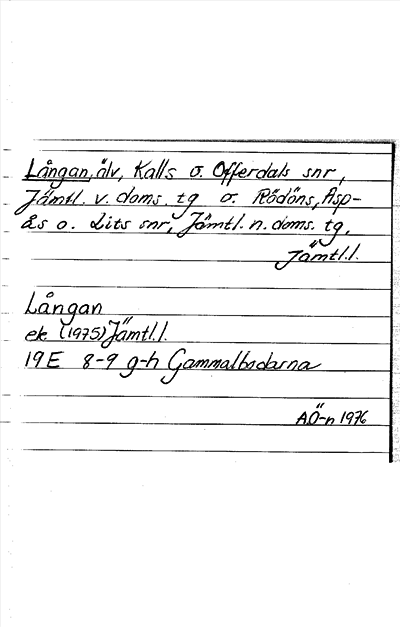 Långan, älv, Kalls o. Offerdals snr,
Jämtl. v. doms. tg o. Rödöns, Asp-
ås o. Lits snr, Jämtl. n. doms. tg,
Jämtl.l.
Långan
ek (1975) Jämtl.l.
19E 8-9 g-h Gammalbodarna
AÖ-n 1976